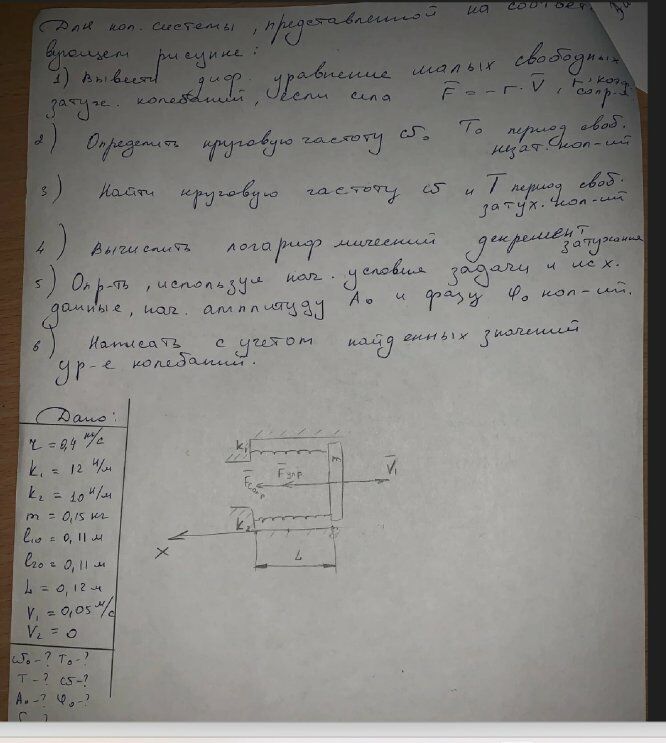 Для кол. системы, представленной на соответ.
вующем рисунке:
1) Вывести диф. уравнение малых свободных
затух. колебаний, если сила F̅ = - r · V̅, r, коэф
сопр-я
2) Определить круговую частоту ω₀ T₀ период своб.
незат. кол-ий
3) Найти круговую частоту ω и T период своб.
затух. кол-ий
4) Вычислить логарифмический декремент
затухания
5) Опр-ть, используя нач. условия задачи и исх.
данные, нач. амплитуду A₀ и фазу φ₀ кол-ий.
6) Написать с учетом найденных значений
ур-е колебаний.
Дано:
r = 0,4 кг/с
k₁ = 12 н/м
k₂ = 10 н/м
m = 0,15 кг
l₁₀ = 0,11 м
l₂₀ = 0,11 м
L = 0,12 м
V₁ = 0,05 м/с
V₂ = 0
ω₀ - ? T₀ - ?
T - ? ω - ?
A₀ - ? φ₀ - ?
k₁
F̅сопр
F̅упр.
m
V̅₁
k₂
X
L